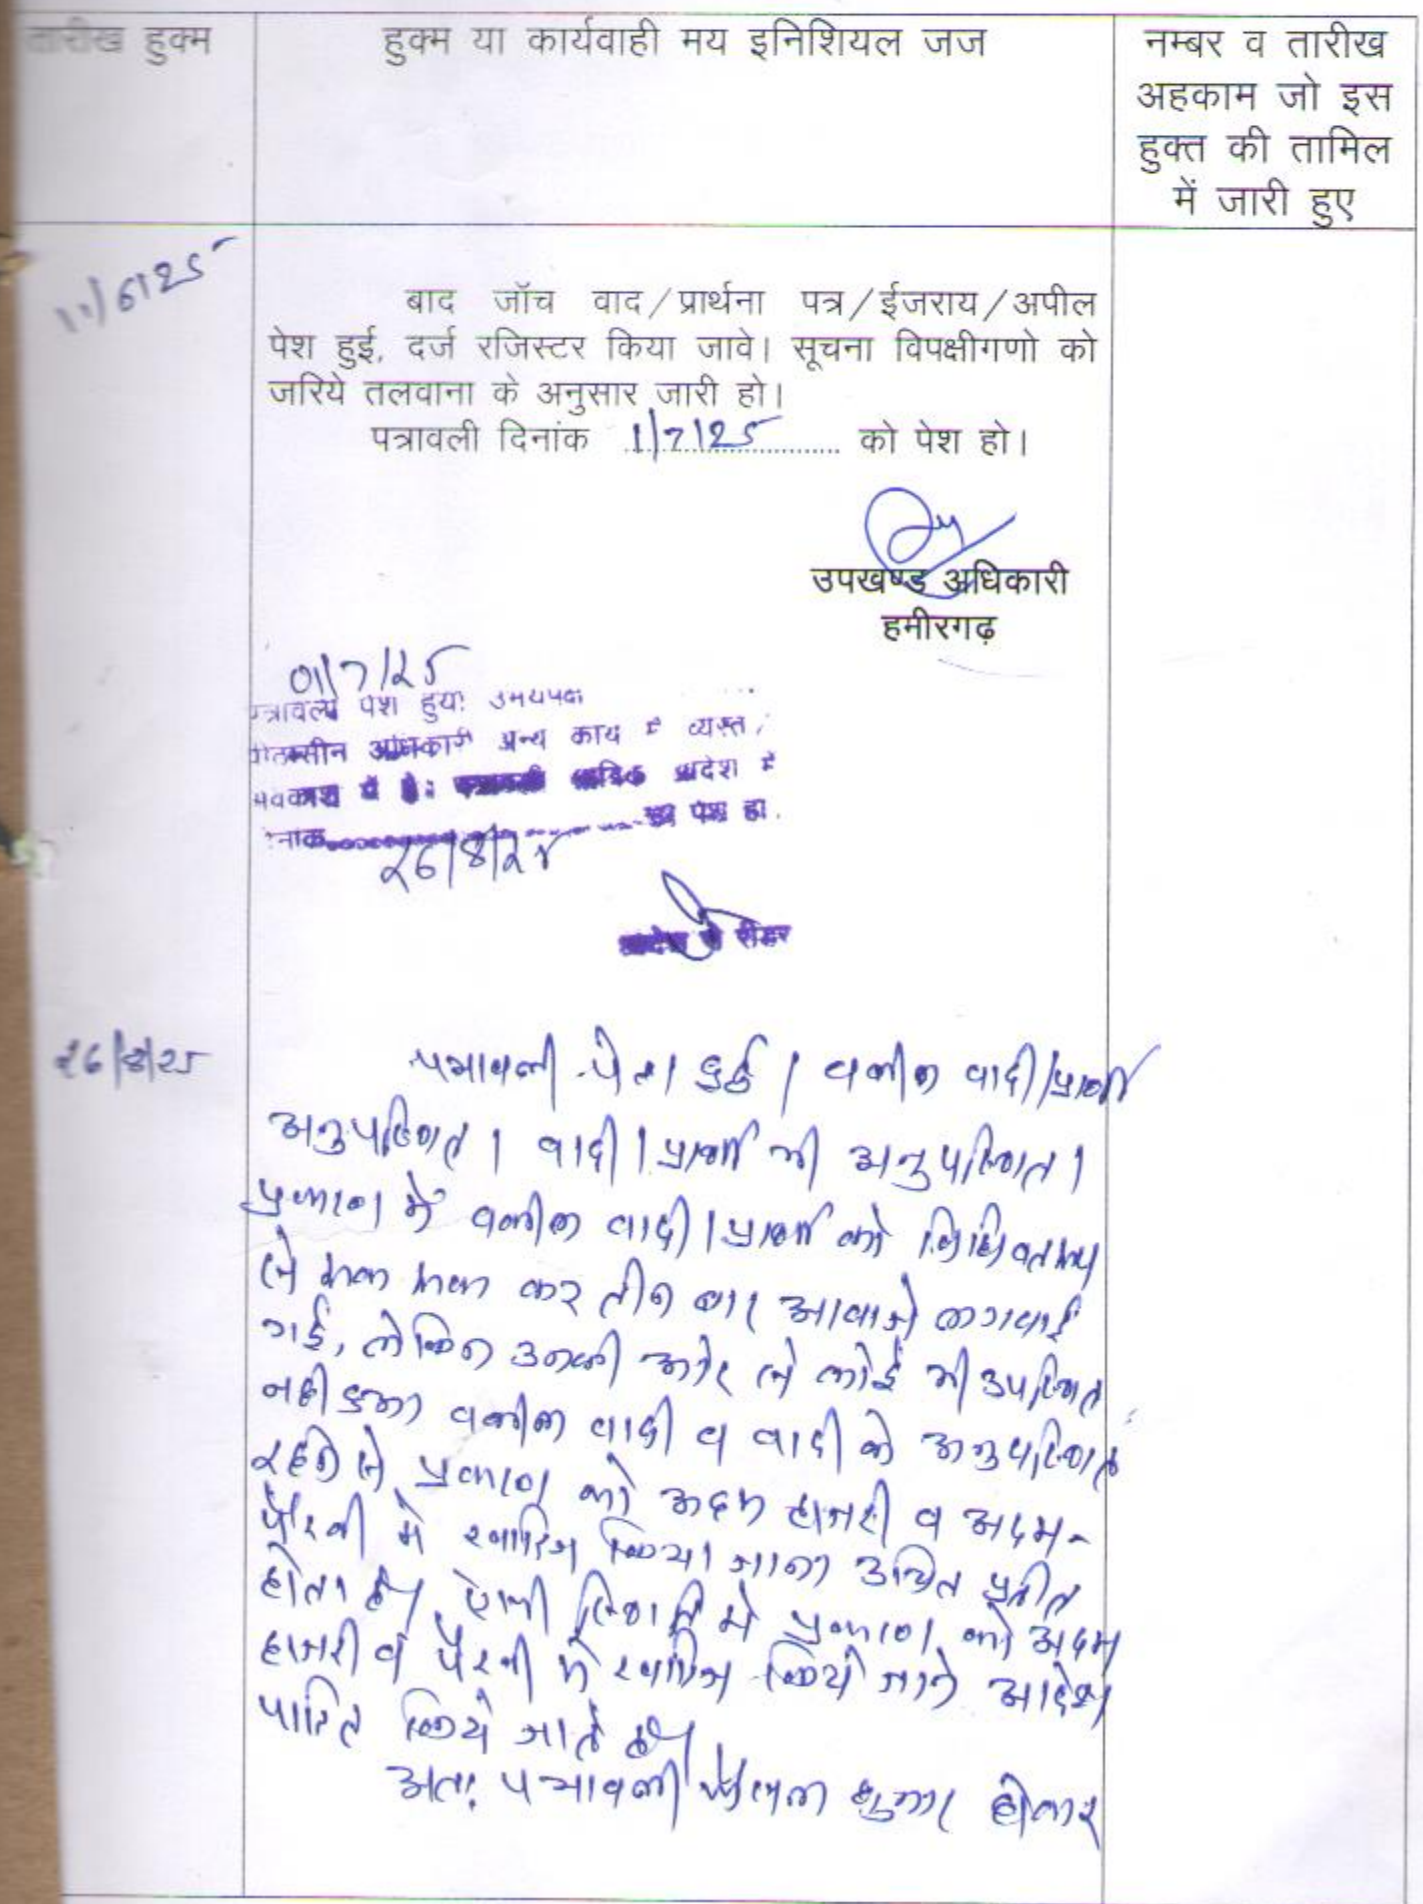 तारीख हुक्म
हुक्म या कार्यवाही मय इनिशियल जज
नम्बर व तारीख
अहकाम जो इस
हुक्त की तामिल
में जारी हुए
11/6/25
बाद जॉच वाद/प्रार्थना पत्र/ईजराय/अपील
पेश हुई, दर्ज रजिस्टर किया जावे। सूचना विपक्षीगणो को
जरिये तलवाना के अनुसार जारी हो।
पत्रावली दिनांक 1/7/25 को पेश हो।
उपखण्ड अधिकारी
हमीरगढ़
01/7/25
पेश हुयी उभयपक्ष
अधिकारी अन्य कार्य में व्यस्त/
में है। आदेश में
पेश हो.
26/8/25
रीडर
26/8/25
पत्रावली पेश हुई। वकील वादी/प्रार्थी
अनुपस्थित। वादी/प्रार्थी भी अनुपस्थित।
प्रकरण में वकील वादी/प्रार्थी को विधिवत रूप
से रूक रूक कर तीन बार आवाजे लगवाई
गई, लेकिन उनकी ओर से कोई भी उपस्थित
नही हुआ वकील वादी व वादी के अनुपस्थित
रहने से प्रकरण को अदम हाजरी व अदम-
पैरवी मे खारिज किया जाना उचित प्रतीत
होता है। ऐसी स्थिति मे प्रकरण को अदम
हाजरी व पैरवी मे खारिज किये जाने आदेश
पारित किये जाते है।
अतः पत्रावली फैसल शुमार होकर